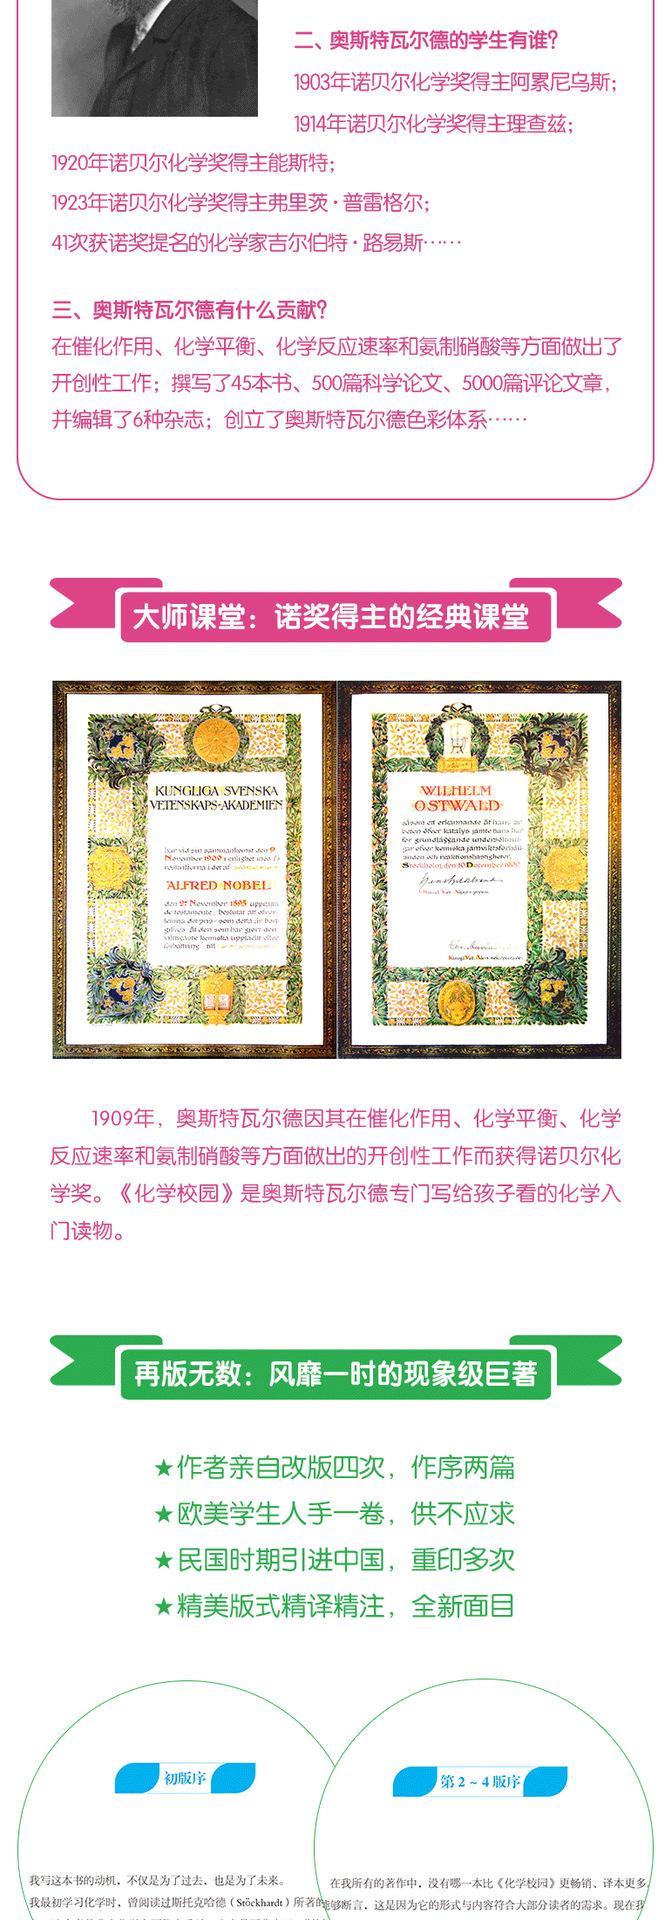 二、奥斯特瓦尔德的学生有谁？
1903年诺贝尔化学奖得主阿累尼乌斯；
1914年诺贝尔化学奖得主理查兹；
1920年诺贝尔化学奖得主能斯特；
1923年诺贝尔化学奖得主弗里茨·普雷格尔；
41次获诺奖提名的化学家吉尔伯特·路易斯……
三、奥斯特瓦尔德有什么贡献？
在催化作用、化学平衡、化学反应速率和氨制硝酸等方面做出了
开创性工作；撰写了45本书、500篇科学论文、5000篇评论文章，
并编辑了6种杂志；创立了奥斯特瓦尔德色彩体系……
大师课堂：诺奖得主的经典课堂
KUNGLIGA SVENSKA
VETENSKAPS-AKADEMIEN
har vid sin sammankomst den 9
November 1909 i enlighet med
ALFRED NOBEL
den 27 November 1895 upprättade
WILHELM
OSTWALD
såsom ett erkännande åt hans ar
beten öfver katalys jämte hans här
för grundläggande undersöknin
gar öfver kemiska jämviktsförhål
landen och reaktionshastigheter.
Stockholm den 10 December 1909
1909年，奥斯特瓦尔德因其在催化作用、化学平衡、化学
反应速率和氨制硝酸等方面做出的开创性工作而获得诺贝尔化
学奖。《化学校园》是奥斯特瓦尔德专门写给孩子看的化学入
门读物。
再版无数：风靡一时的现象级巨著
★作者亲自改版四次，作序两篇
★欧美学生人手一卷，供不应求
★民国时期引进中国，重印多次
★精美版式精译精注，全新面目
初版序
第 2 ~ 4 版序
我写这本书的动机，不仅是为了过去，也是为了未来。
我最初学习化学时，曾阅读过斯托克哈德（Stöckhardt）所著的
在我所有的著作中，没有哪一本比《化学校园》更畅销、译本更多
能够断言，这是因为它的形式与内容符合大部分读者的需求。现在我